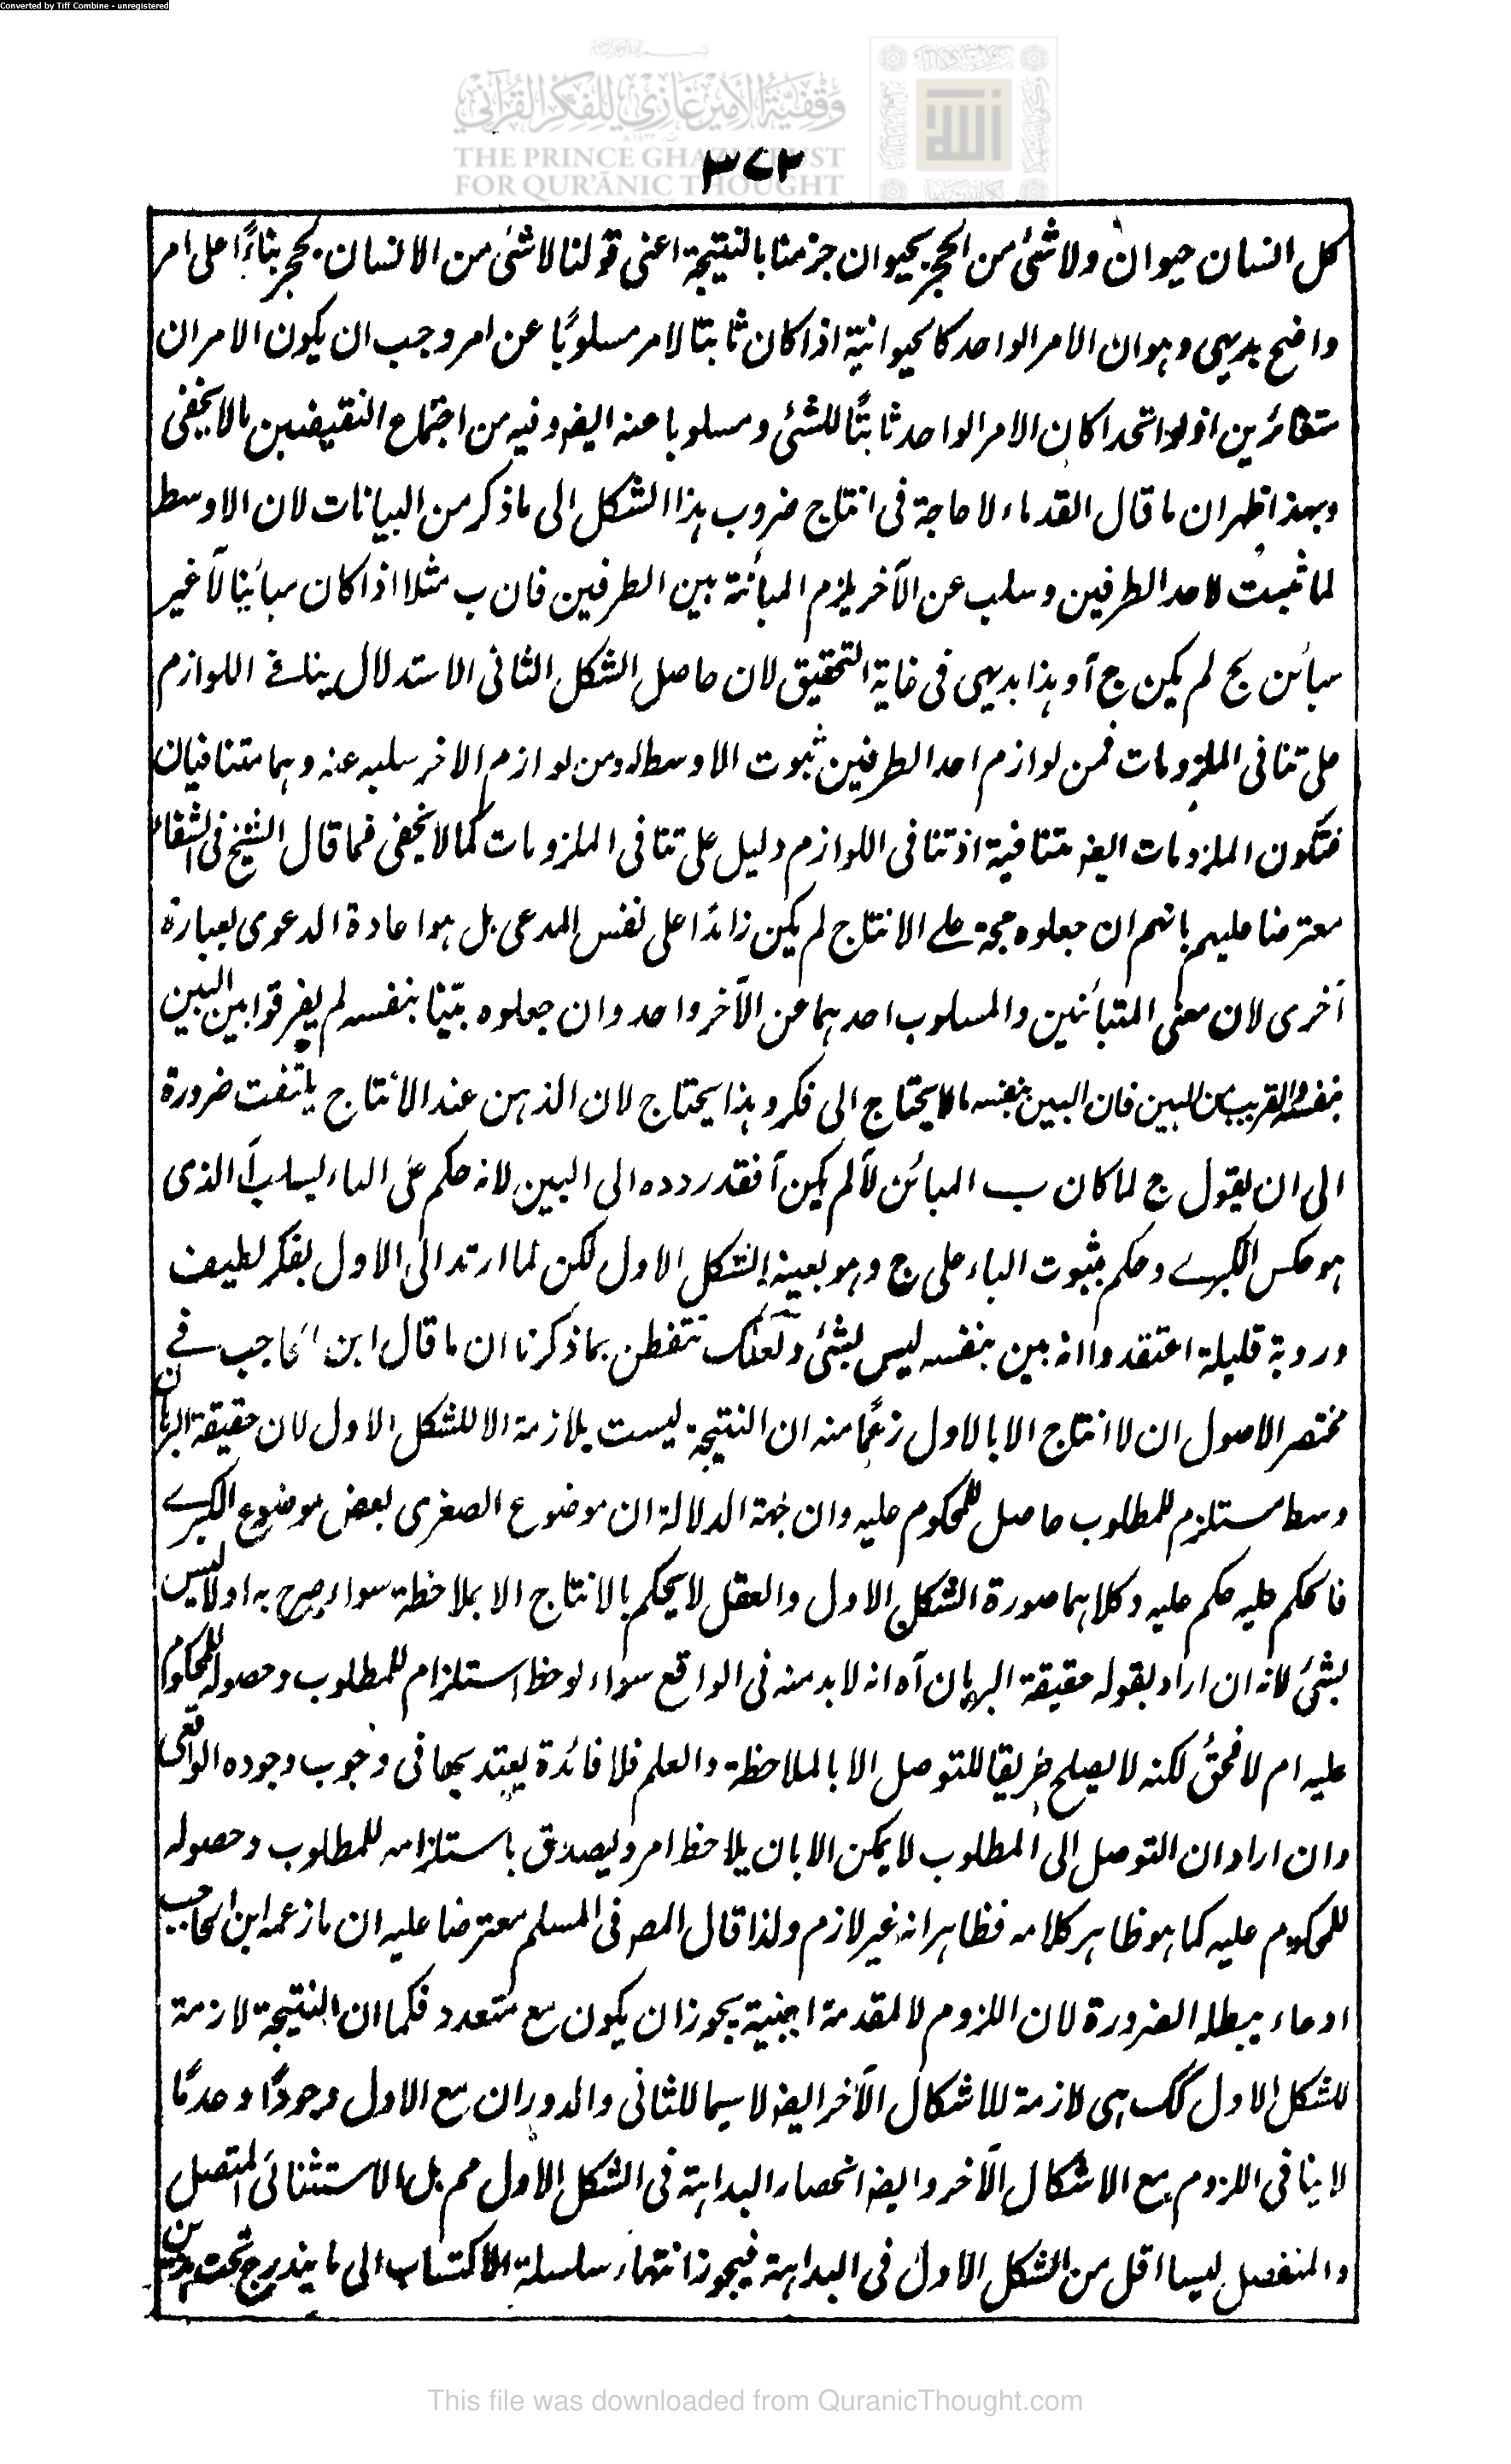 Converted by Tiff Combine - unregistered
وقفية الأمير غازي للفكر القرآني
THE PRINCE GHAZI TRUST
FOR QUR'ĀNIC THOUGHT
٣٧٢
كل انسان حيوان ولاشئ من الحجر بحيوان جزمنا بالنتيجة اعنى قولنا لاشئ من الانسان بحجر بناءً على امر
واضح بديهى وهو ان الامر الواحد كالحيوانية اذا كان ثابتا لامر مسلوبًا عن امر وجب ان يكون الامران
متغائرين اذ لو اتحدا كان الامر الواحد ثابتًا للشئ ومسلوبا عنه ايضا وفيه من اجتماع النقيضين مالا يخفى
وبهذا ظهر ان ما قال القدماء لا حاجة فى انتاج ضروب هذا الشكل الى ما ذكر من البيانات لان الاوسط
لما ثبت لاحد الطرفين وسلب عن الآخر يلزم المبائنة بين الطرفين فان ب مثلا اذا كان مبائنا لآ غير
مبائن لج لم يكن ج آ وهذا بديهى فى غاية التحقيق لان حاصل الشكل الثانى الاستدلال بتنافى اللوازم
على تنافى الملزومات فمن لوازم احد الطرفين ثبوت الاوسط له ومن لوازم الاخر سلبه عنه وهما متنافيان
فتكون الملزومات ايضا متنافية اذ تنافى اللوازم دليل على تنافى الملزومات كما لا يخفى فما قال الشيخ فى الشفاء
معترضا عليهم بانهم ان جعلوه حجة على الانتاج لم يكن زائدا على نفس المدعى بل هو اعادة الدعوى بعبارة
أخرى لان معنى المتبائنين والمسلوب احدهما عن الآخر واحد وان جعلوه بيّنا بنفسه لم يفرقوا بين البين
بنفسه والقريب من البين فان البين بنفسه مالا يحتاج الى فكر وهذا يحتاج لان الذهن عند الانتاج يلتفت ضرورة
الى ان يقول ج لما كان ب المبائن لآ لم يكن آ فقد ردده الى البين لانه حكم على الباء بسلب آ الذى
هو عكس الكبرى وحكم بثبوت الباء على ج وهو بعينه الشكل الاول لكن لما ارتد الى الاول بفكر لطيف
وروية قليلة اعتقدوا انه بين بنفسه ليس بشئ ولعلك تتفطن بما ذكرنا ان ما قال ابن الحاجب فى
مختصر الاصول ان لا انتاج الا بالاول زعمًا منه ان النتيجة ليست بلازمة الا للشكل الاول لان حقيقة البرهان
وسط مستلزم للمطلوب حاصل للمحكوم عليه وان جهة الدلالة ان موضوع الصغرى بعض موضوع الكبرى
فالحكم عليه حكم عليه وكلاهما صورة الشكل الاول والعقل لا يحكم بالانتاج الا بملاحظة سواء صرح به او لا ليس
بشئ لانه ان اراد بقوله حقيقة البرهان آه انه لا بد منه فى الواقع سواء لوحظ استلزام للمطلوب وحصوله للمحكوم
عليه ام لا فحقٌ لكنه لا يصلح طريقا للتوصل الا بالملاحظة والعلم فلا فائدة يعتد بها فى وجوب وجوده الواقعى
وان اراد ان التوصل الى المطلوب لا يمكن الا بان يلاحظ امر ويصدق باستلزامه للمطلوب وحصوله
للمحكوم عليه كما هو ظاهر كلامه فظاهر انه غير لازم ولذا قال المصـ فى المسلم معترضا عليه ان ما زعمه ابن الحاجب
ادعاء يبطله الضرورة لان اللزوم لا لمقدمة اجنبية يجوز ان يكون مع متعدد فكما ان النتيجة لازمة
للشكل الاول كك هى لازمة للاشكال الآخر ايضا لا سيما للثانى والدوران مع الاول وجودًا وعدمًا
لا ينافى اللزوم مع الاشكال الآخر وايضا انحصار البداهة فى الشكل الاول مم بل الاستثنائى المتصل
والمنفصل ليسا اقل من الشكل الاول فى البداهة فيجوز انتهاء سلسلة الاكتساب الى ما يندرج تحت
This file was downloaded from QuranicThought.com